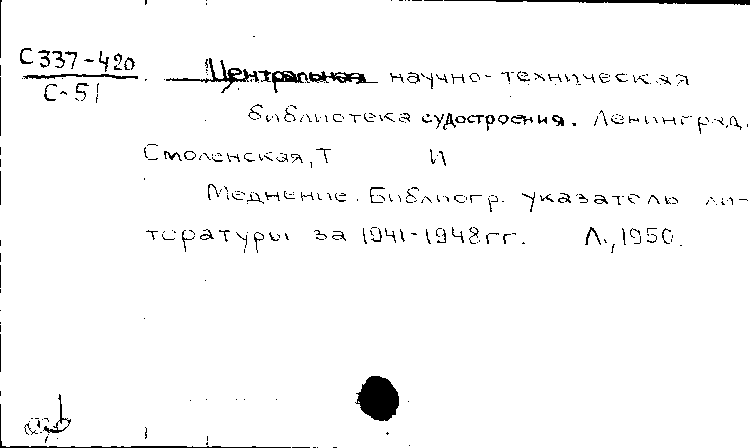 С337-420
С-51
Центральная научно-техническая
библиотека судостроения. Ленинград.
Смоленская, Т И
Меднение. Библиогр. указатель ли-
тературы за 1941-1948гг. Л., 1950.